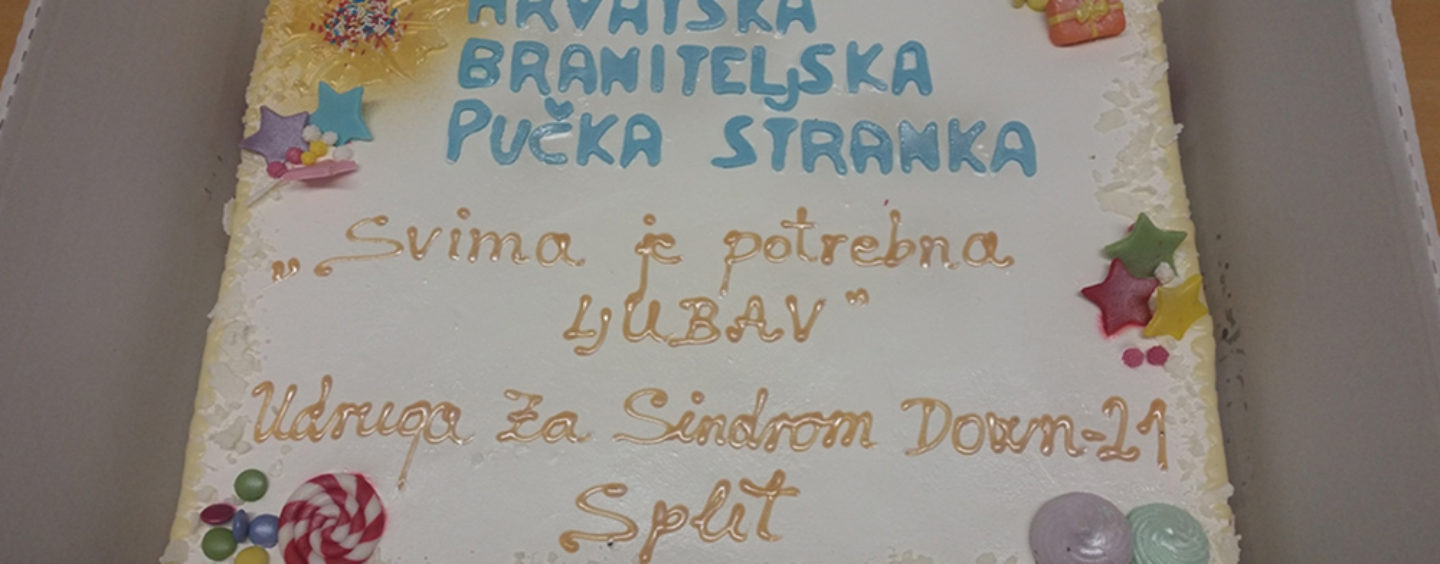 HRVATSKA
BRANITELjSKA
PUČKA STRANKA
„Svima je potrebna
LjUBAV"
Udruga Za Sindrom Down-21
Split